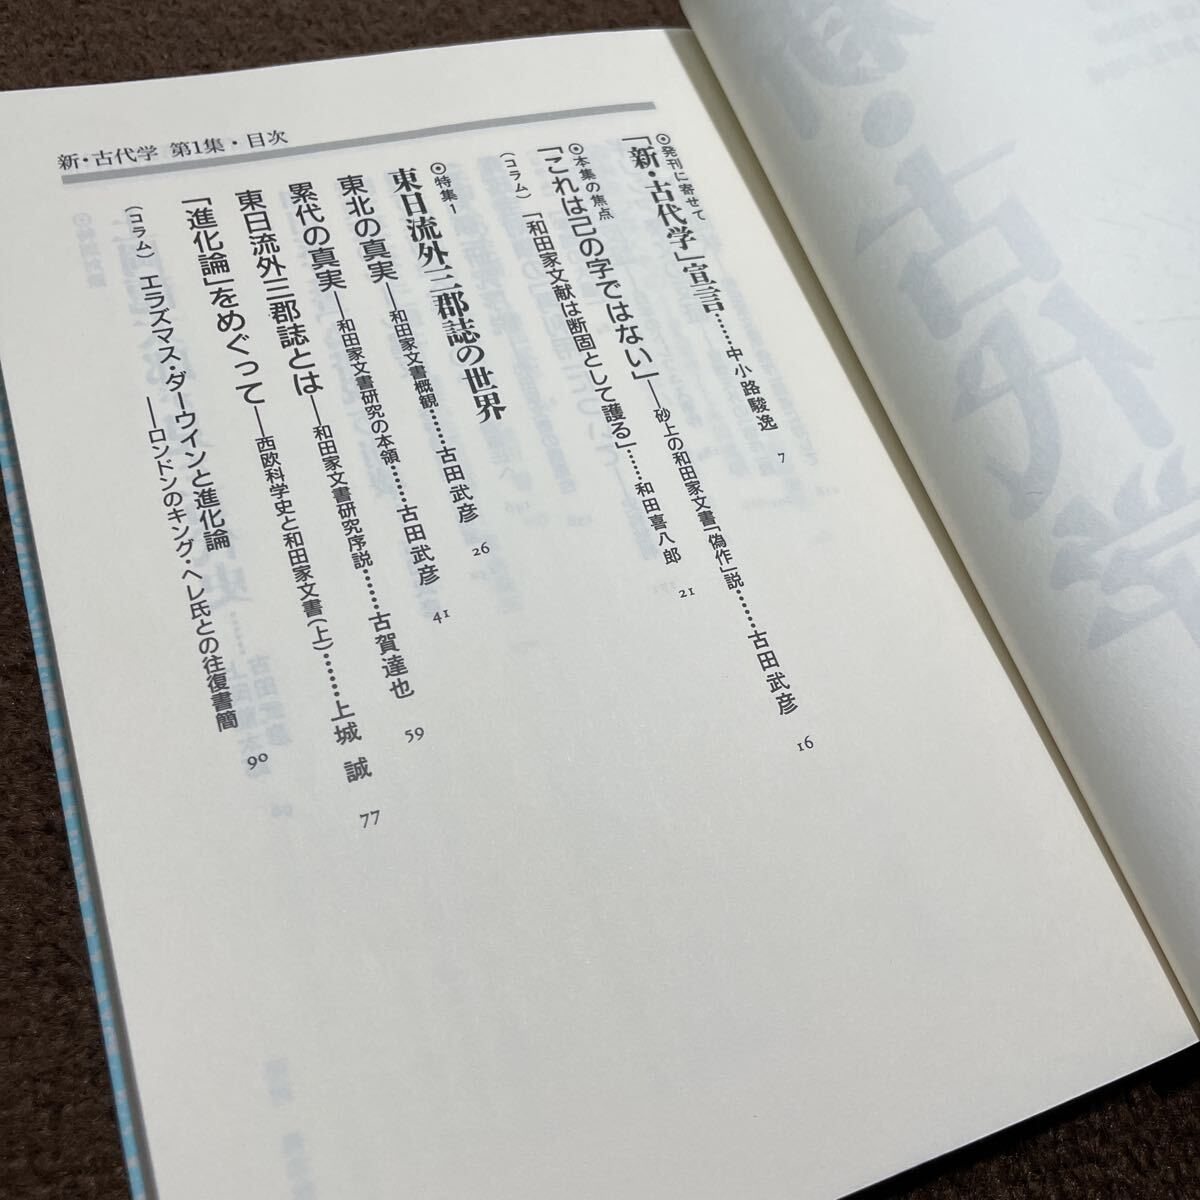 新・古代学 第1集・目次
◉発刊に寄せて
「新・古代学」宣言……中小路駿逸 7
◉本集の焦点
「これは己の字ではない」——砂上の和田家文書「偽作」説……古田武彦 16
(コラム) 「和田家文献は断固として護る」……和田喜八郎 21
◉特集1
東日流外三郡誌の世界
東北の真実——和田家文書概観……古田武彦 26
累代の真実——和田家文書研究の本領……古田武彦 41
東日流外三郡誌とは——和田家文書研究序説……古賀達也 59
「進化論」をめぐって——西欧科学史と和田家文書(上)……上城 誠 77
(コラム) エラズマス・ダーウインと進化論
——ロンドンのキング・ヘレ氏との往復書簡 90